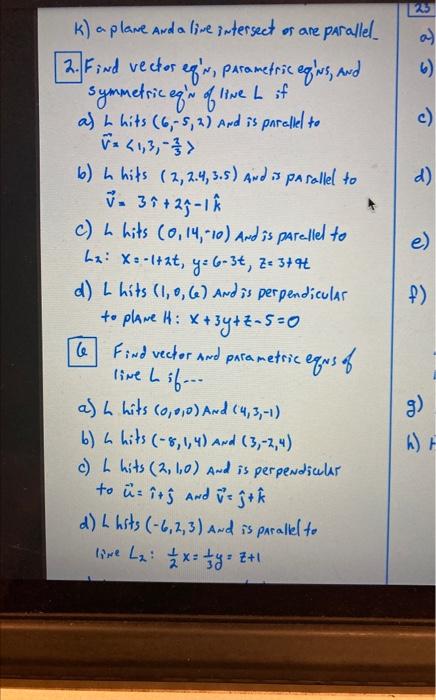 k) a plane and a line intersect or are parallel
2. Find vector eq'n, parametric eq'ns, and
symmetric eq'n of line L if
a) L hits (6,-5,2) and is parallel to
v⃗ = <1,3,-2/3>
b) L hits (2,2.4,3.5) and is parallel to
v⃗ = 3î+2ĵ-1k̂
c) L hits (0,14,-10) and is parallel to
L₂: x=-1+2t, y=6-3t, z=3+9t
d) L hits (1,0,6) and is perpendicular
to plane H: x+3y+z-5=0
6 Find vector and parametric eqns of
line L if...
a) L hits (0,0,0) and (4,3,-1)
b) L hits (-8,1,4) and (3,-2,4)
c) L hits (2,1,0) and is perpendicular
to u⃗=î+ĵ and v⃗=ĵ+k̂
d) L hits (-6,2,3) and is parallel to
line L₂: 1/2 x = 1/3 y = z+1
23
a)
b)
c)
d)
e)
f)
g)
h)